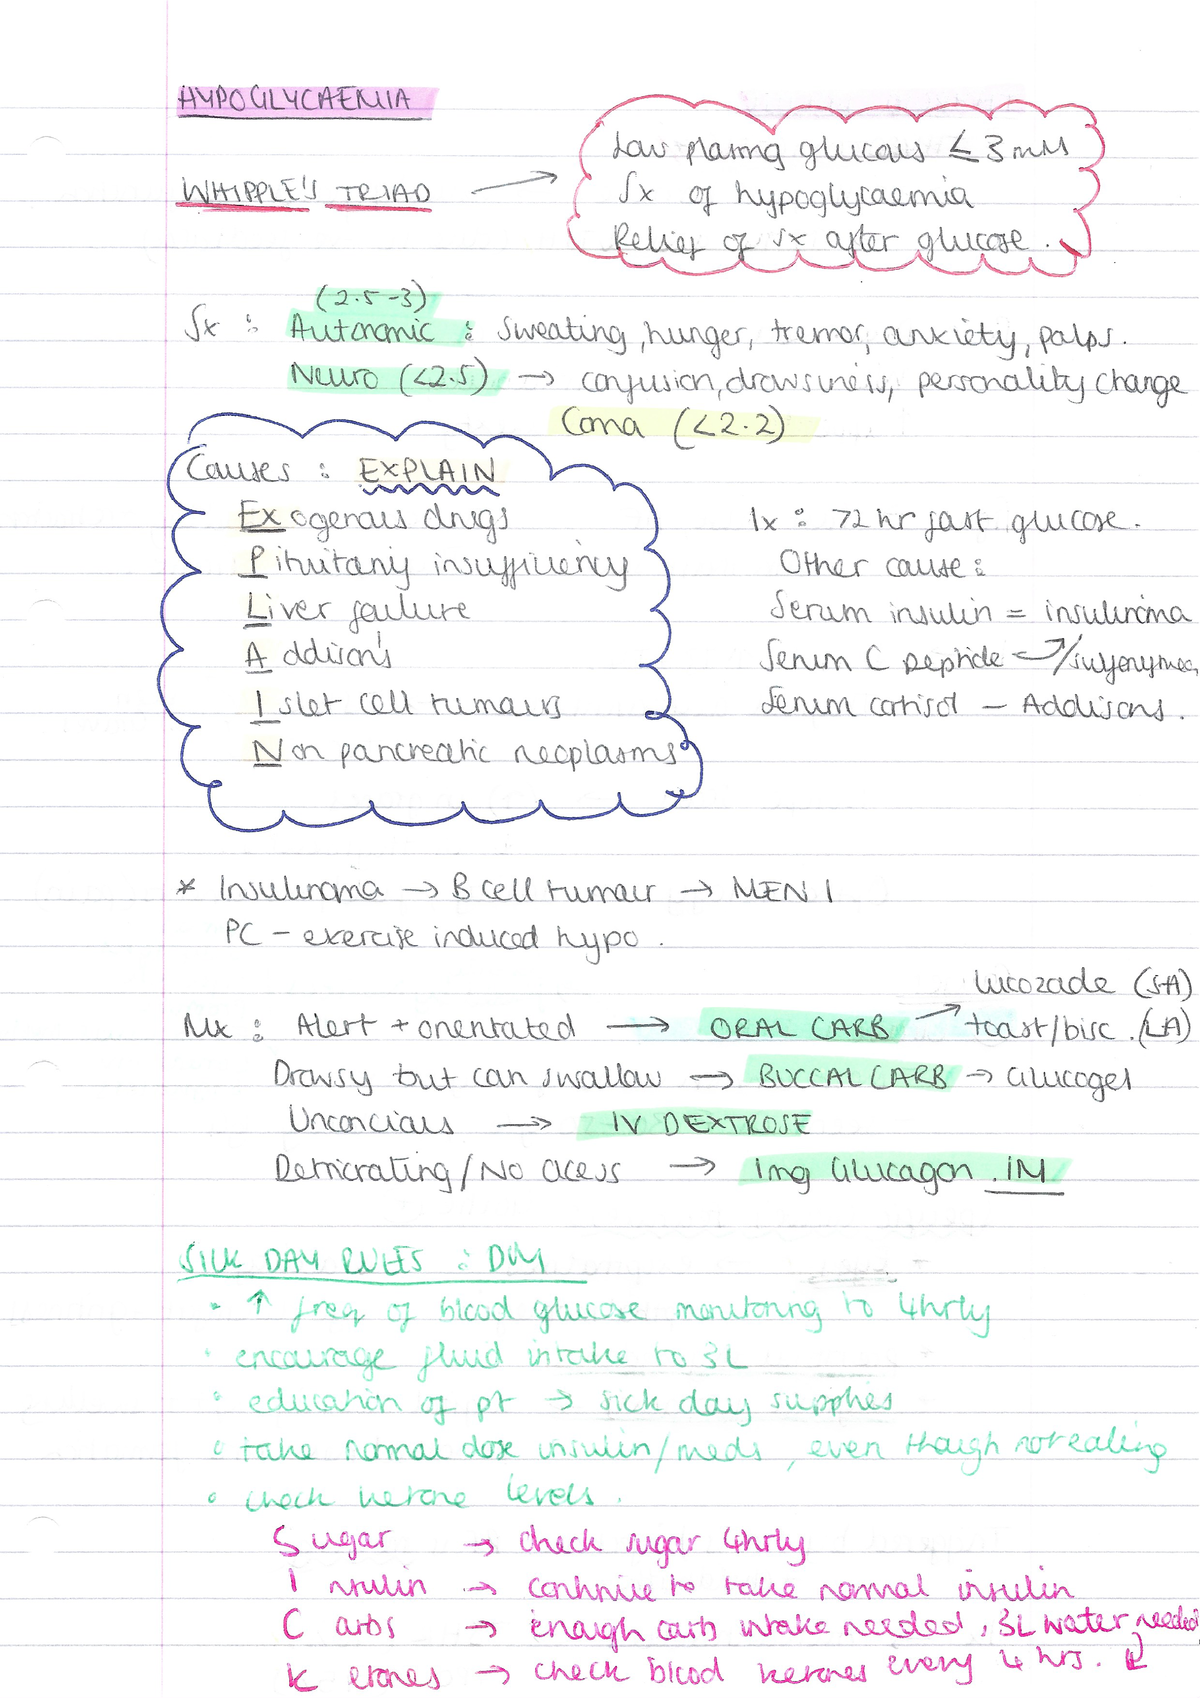 HYPOGLYCAEMIA
Low plasma glucous ≤3mM
WHIPPLE'S TRIAD → Sx of hypoglycaemia
Relief of sx after glucose.
(2.5-3)
Sx : Autonomic : sweating, hunger, tremor, anxiety, palps.
Neuro (<2.5) → confusion, drowsiness, personality change
Coma (<2.2)
Causes : EXPLAIN
Exogenous drugs
Pituitary insufficiency
Liver failure
Addison's
Islet cell tumours
Non pancreatic neoplasms
Ix : 72 hr fast, glucose.
Other cause :
Serum insulin = insulinoma
Serum C peptide
Serum cortisol - Addisons.
* Insulinoma → B cell tumour → MEN 1
PC - exercise induced hypo.
lucozade (SA)
Mx : Alert + orientated → ORAL CARB → toast/bisc. (LA)
Drowsy but can swallow → BUCCAL CARB → Glucogel
Unconcious → IV DEXTROSE
Deteriorating/No acess → 1mg Glucagon. IM
SICK DAY RULES : DM
• ↑ freq of blood glucose monitoring to 4hrly
• encourage fluid intake to 3L
• education of pt → sick day supplies
• take normal dose insulin/meds, even though not eating
• check ketone levels.
Sugar → check sugar 4hrly
Insulin → continue to take normal insulin
Carbs → enough carb intake needed, 3L water needed
Ketones → check blood ketones every 4 hrs.